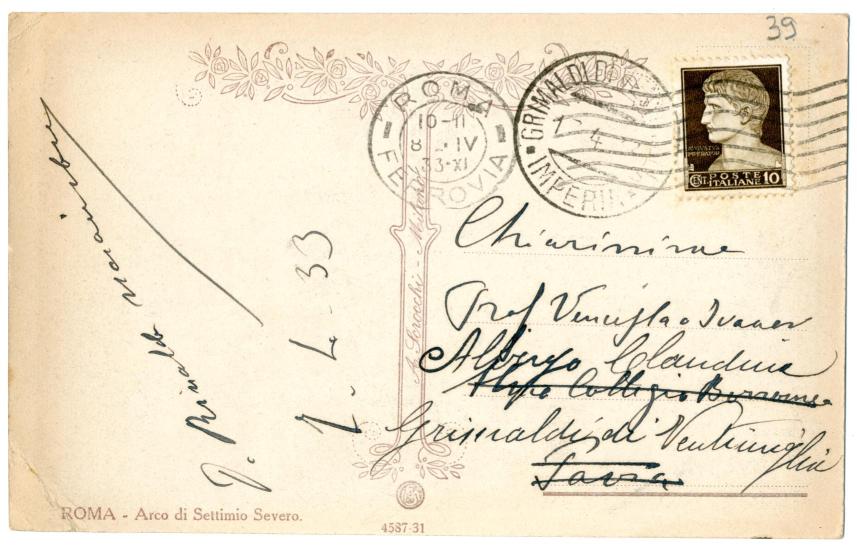 39
ROMA
FERROVIA
10-11
8 IV
33·XI
GRIMALDI DI
IMPERIA
4
AVGVSTVS
IMPERATOR
POSTE
CENT. ITALIANE 10
7-4-33
A. Scrocchi - Milano
Chiarissimo
Prof Venceslao Ivanov
Albergo Claudina
Almo Collegio Borromeo
Grimaldi di Ventimiglia
Pavia
ROMA - Arco di Settimio Severo.
4587-31